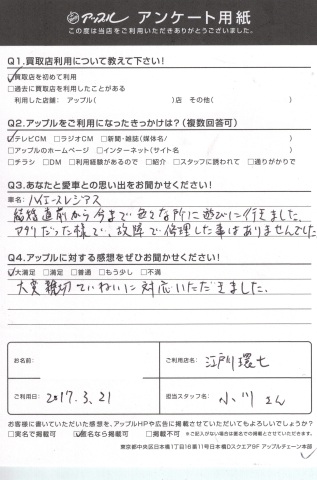 アップル アンケート用紙
この度は当店をご利用いただきありがとうございました。
Q1.買取店利用について教えて下さい!
☑買取店を初めて利用
□過去に買取店を利用したことがある
利用した店舗: アップル( )店 その他( )
Q2.アップルをご利用になったきっかけは?(複数回答可)
☑テレビCM □ラジオCM □新聞・雑誌(媒体名/ )
□アップルのホームページ □インターネット(サイト名 )
□チラシ □DM □利用経験があるので □紹介 □スタッフに誘われて □通りがかりで
Q3.あなたと愛車との思い出をお聞かせください!
車名: ハイエースレジアス
結婚直前から今まで色々な所に遊びに行きました。
アタリだった様で、故障で修理した事はありませんでした
Q4.アップルに対する感想をぜひお聞かせください!
☑大満足 □満足 □普通 □もう少し □不満
大変親切ていねいに対応いただきました。
お名前: ご利用店名: 江戸川環七
ご利用日: 2017.3.21 担当スタッフ名: 小川さん
お客様に書いていただいた感想を、アップルHPや広告に掲載させていただいてもよろしいでしょうか?
□実名で掲載可 ☑匿名なら掲載可 □掲載不可 ※ご記入がない場合は匿名での掲載とさせていただきます。
東京都中央区日本橋1丁目16番11号日本橋Dスクエア8F アップルチェーン本部